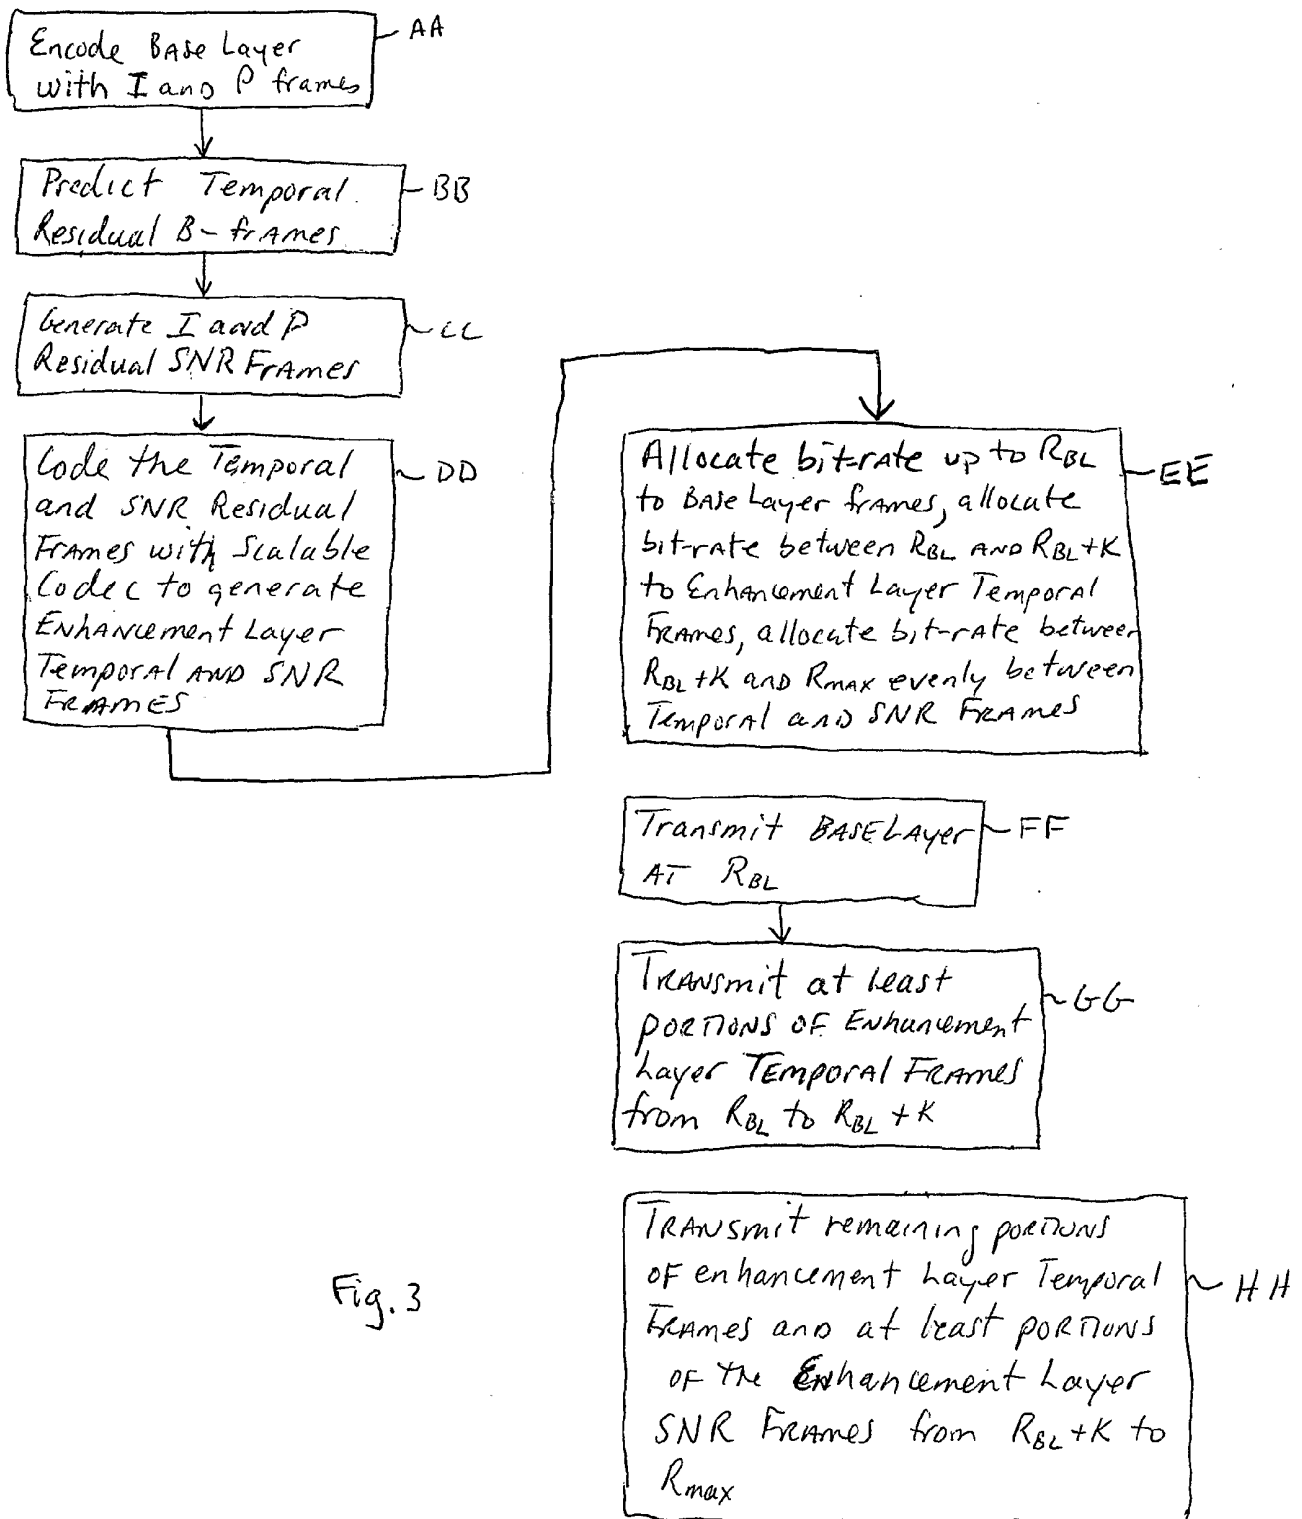 Encode Base Layer
with I and P frames
AA
Predict Temporal
Residual B-frames
BB
Generate I and P
Residual SNR Frames
CC
Code the Temporal
and SNR Residual
Frames with Scalable
Codec to generate
Enhancement Layer
Temporal and SNR
Frames
DD
Allocate bit-rate up to RBL
to Base Layer frames, allocate
bit-rate between RBL AND RBL+K
to Enhancement Layer Temporal
Frames, allocate bit-rate between
RBL+K and RMAX evenly between
Temporal and SNR Frames
EE
Transmit BASE LAyer
AT RBL
FF
Transmit at least
PORTIONS OF Enhancement
Layer Temporal Frames
from RBL to RBL+K
GG
Transmit remaining portions
of enhancement Layer Temporal
Frames and at least portions
of the Enhancement Layer
SNR Frames from RBL+K to
Rmax
HH
Fig. 3